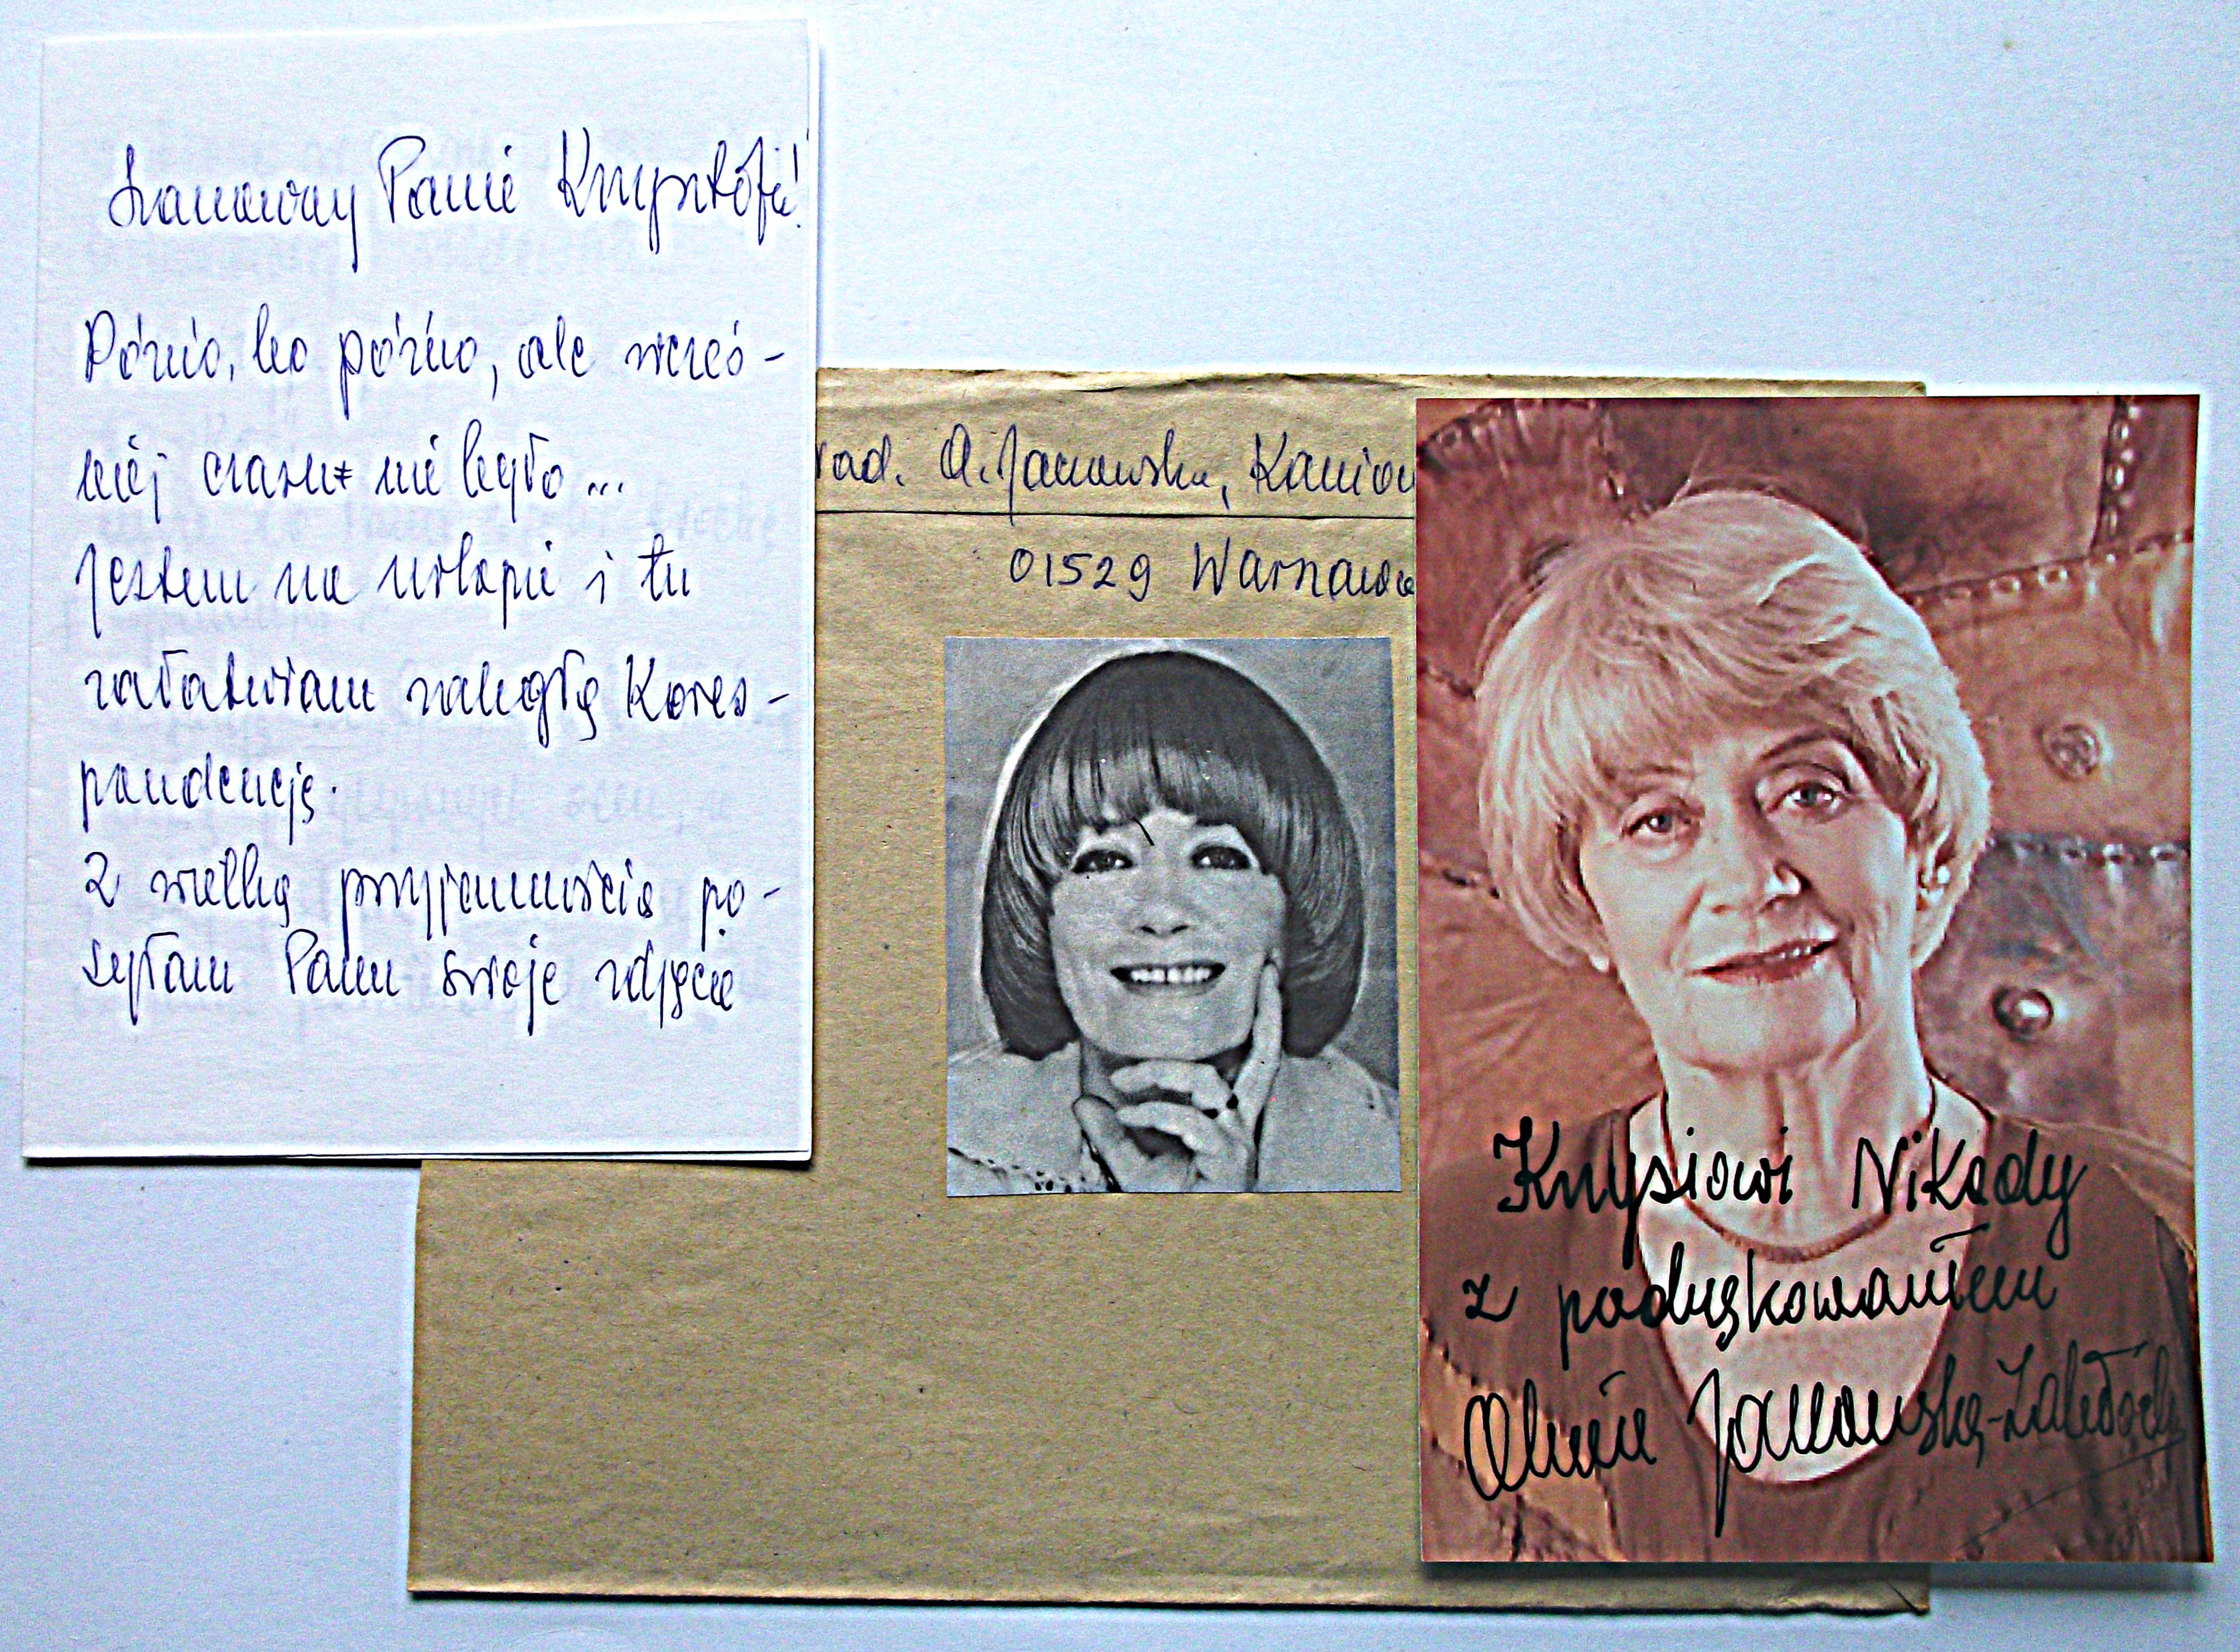 Szanowny Panie Krzysztofie!
Późno, bo późno, ale wcześ-
niej czasu nie było...
Jestem na urlopie i tu
załatwiam zaległą kores-
pondencję.
Z wielką przyjemnością po-
syłam Panu swoje zdjęcie
nad. A. Janowska, Kaniow
01529 Warszawa
Krzysiowi Nikody
z podziękowaniem
Alina Janowska-Zabłocka